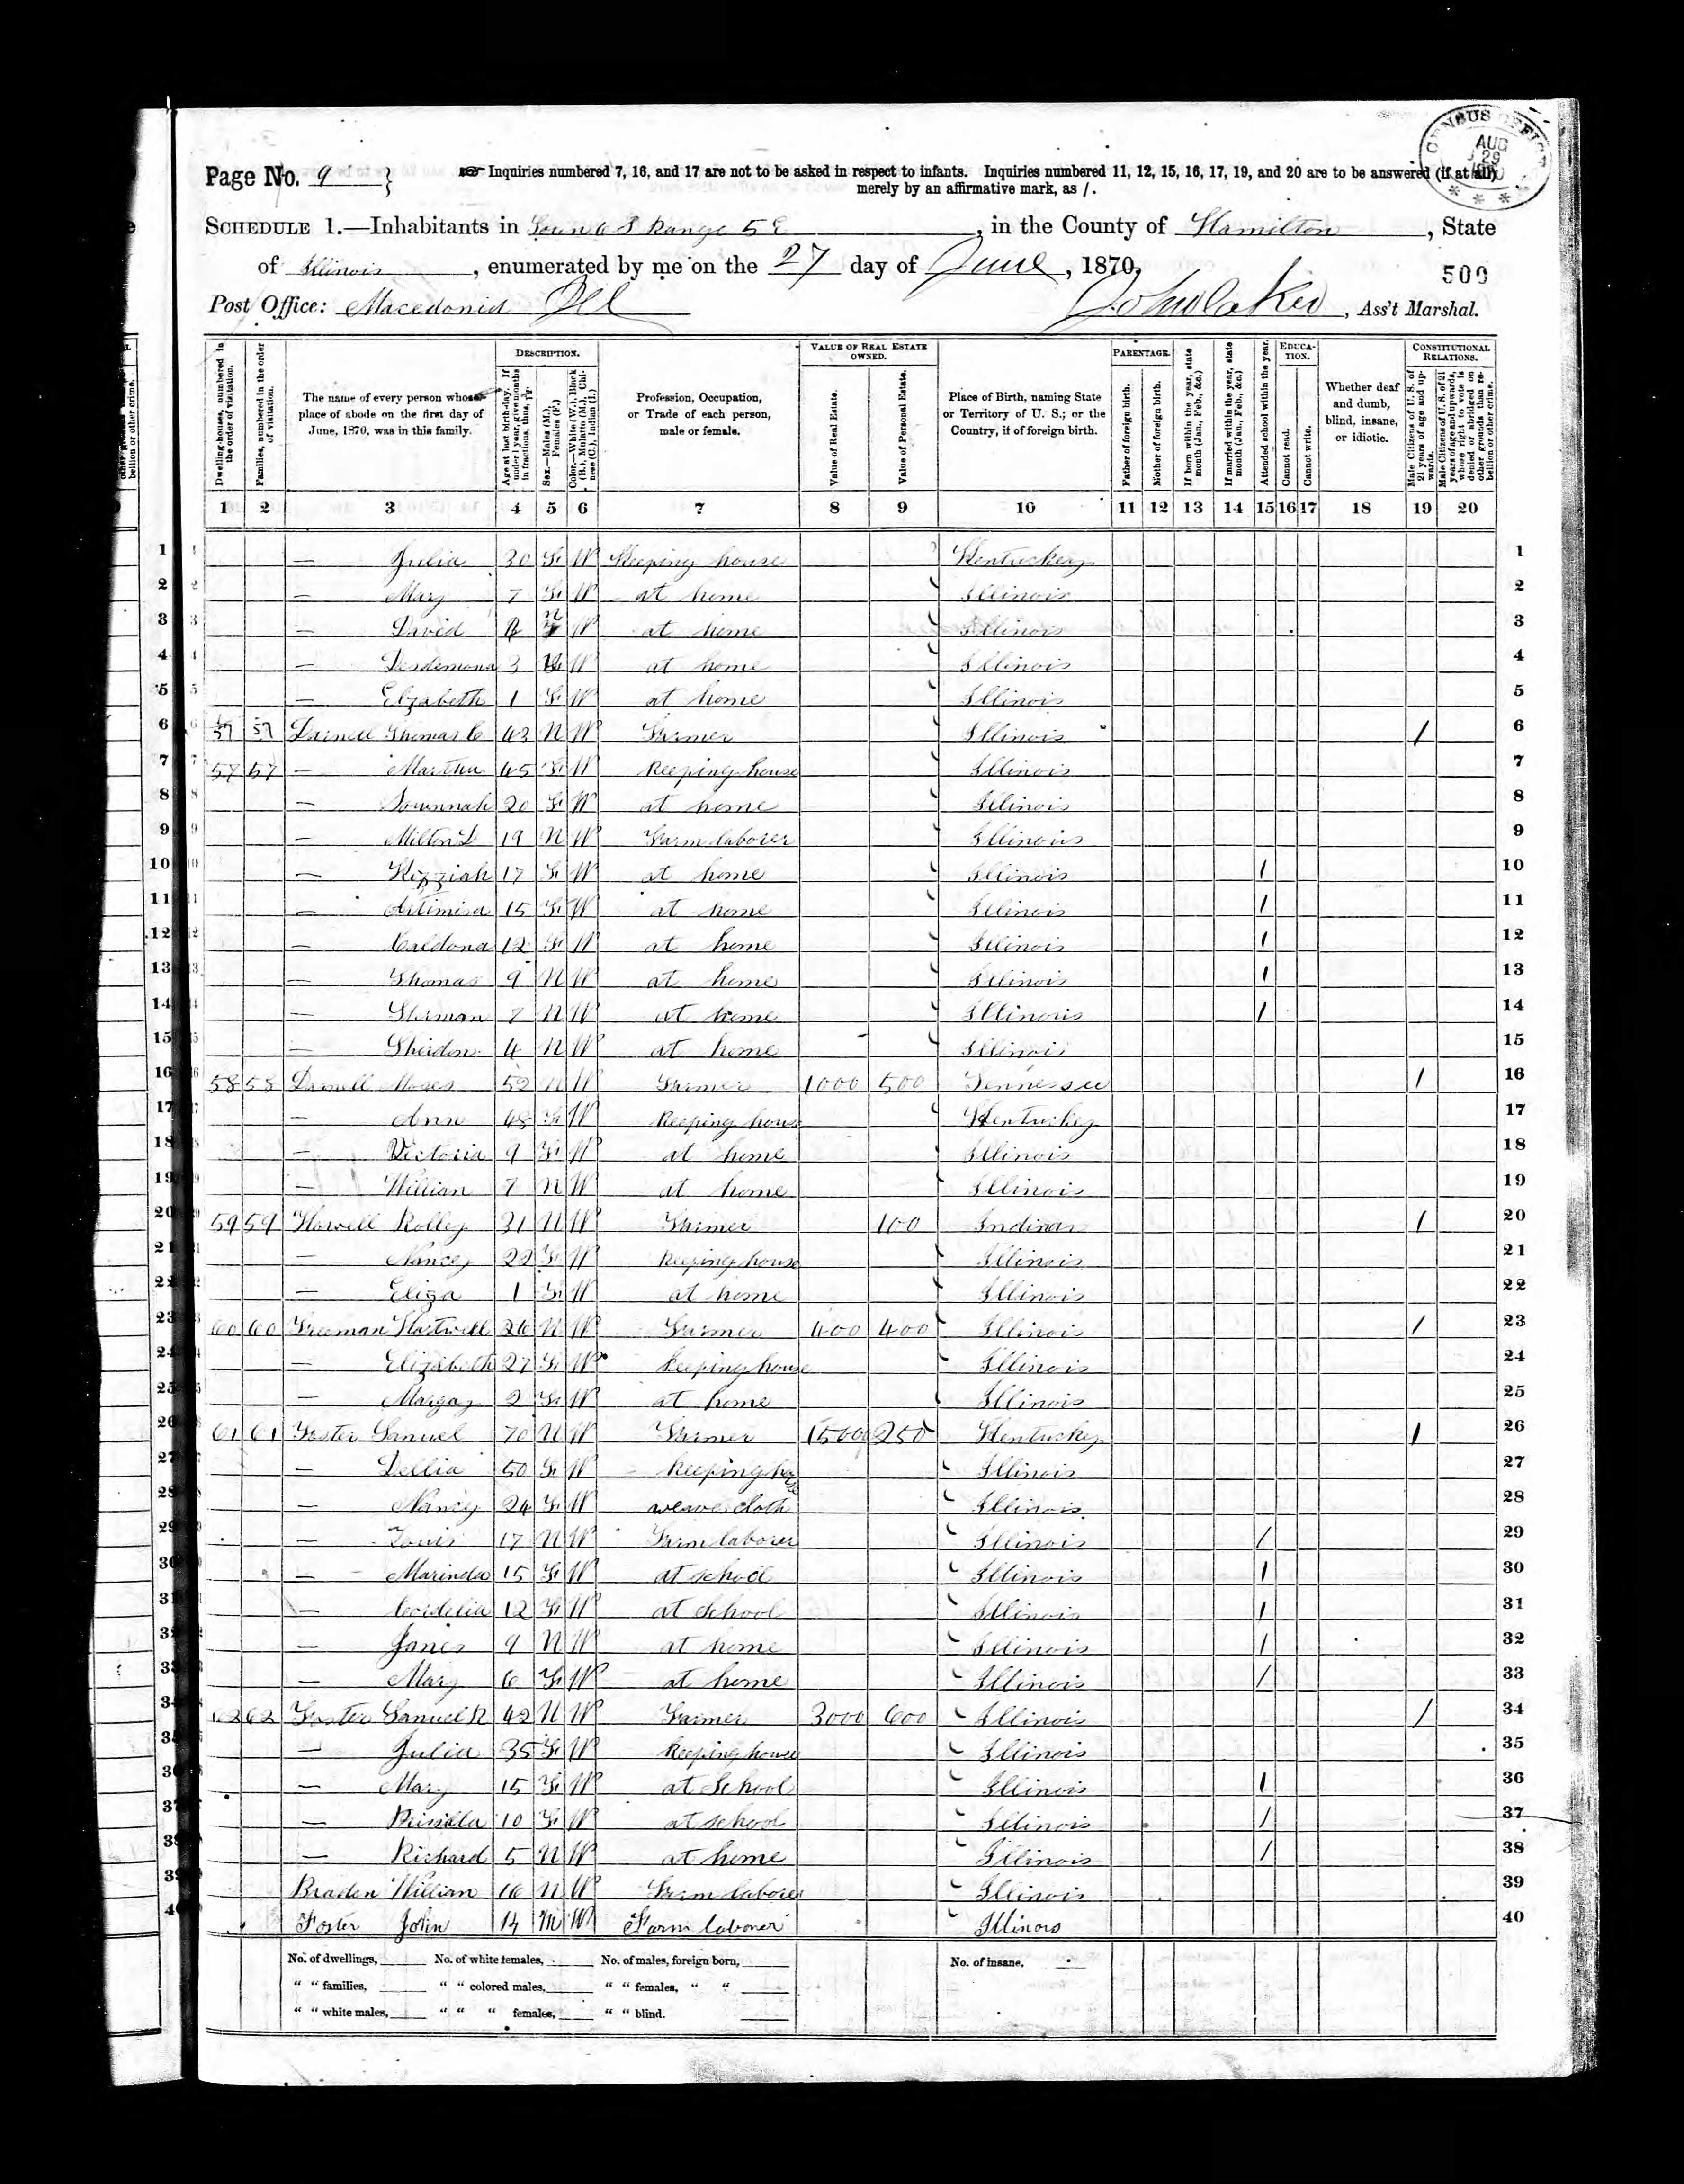 Page No. 9
Inquiries numbered 7, 16, and 17 are not to be asked in respect to infants. Inquiries numbered 11, 12, 15, 16, 17, 19, and 20 are to be answered (if at all)
merely by an affirmative mark, as /.
CENSUS OFFICE AUG 29
SCHEDULE 1.—Inhabitants in Town 6 S Range 5 E, in the County of Hamilton, State
of Illinois, enumerated by me on the 27 day of June, 1870.
509
Post Office: Macedonia Ill
, Ass't Marshal.
Dwelling-houses, numbered in the order of visitation.
Families, numbered in the order of visitation.
The name of every person whose place of abode on the first day of June, 1870, was in this family.
DESCRIPTION.
Age at last birth-day. If under 1 year, give months in fractions, thus,
Sex.—Males (M.), Females (F.)
Color.—White (W.), Black (B.), Mulatto (M.), Chinese (C.), Indian (I.)
Profession, Occupation, or Trade of each person, male or female.
VALUE OF REAL ESTATE OWNED.
Value of Real Estate.
Value of Personal Estate.
Place of Birth, naming State or Territory of U. S.; or the Country, if of foreign birth.
PARENTAGE.
Father of foreign birth.
Mother of foreign birth.
If born within the year, state month (Jan., Feb., &c.)
If married within the year, state month (Jan., Feb., &c.)
Attended school within the year.
EDUCATION.
Cannot read.
Cannot write.
Whether deaf and dumb, blind, insane, or idiotic.
CONSTITUTIONAL RELATIONS.
Male Citizens of U. S. of 21 years of age and upwards.
Male Citizens of U. S. of 21 years of age and upwards, whose right to vote is denied or abridged on other grounds than rebellion or other crime.
1 2 3 4 5 6 7 8 9 10 11 12 13 14 15 16 17 18 19 20
1 — Julia 30 F W Keeping house Kentucky 1
2 — Mary 7 F W at home Illinois 2
3 — David W at home Illinois 3
4 — Desdemona 3 W at home Illinois 4
5 — Elzabeth 1 F W at home Illinois 5
6 57 57 Darnell Thomas C 43 M W Farmer Illinois / 6
7 57 57 — Martha 45 F W Keeping house Illinois 7
8 — 20 F W at home Illinois 8
9 — Milton D 19 M W Farm laborer Illinois 9
10 — Kizziah 17 F W at home Illinois / 10
11 — Artimisa 15 F W at home Illinois / 11
12 — Caldona 12 F W at home Illinois / 12
13 — Thomas 9 M W at home Illinois / 13
14 — Sherman 7 M W at home Illinois / 14
15 — Sheridon 4 M W at home Illinois 15
16 58 58 Darnell Moses 52 M W Farmer 1000 500 Tennessee / 16
17 — Ann 48 F W Keeping house Kentucky 17
18 — Victoria 9 F W at home Illinois 18
19 — Willian 7 M W at home Illinois 19
20 59 59 Howell Rolley 31 M W Farmer 100 Indiana / 20
21 — Nancy 22 F W Keeping house Illinois 21
22 — Eliza 1 F W at home Illinois 22
23 60 60 Freeman Hartwell 26 M W Farmer 400 400 Illinois / 23
24 — Elizabeth 27 F W Keeping house Illinois 24
25 — 2 F W at home Illinois 25
26 61 61 Foster Samuel 70 M W Farmer 250 Kentucky / 26
27 — Dellia 50 F W Keeping house Illinois 27
28 — Nancy 24 F W weave cloth Illinois 28
29 — Louis 17 M W Farm laborer Illinois / 29
30 — Marinda 15 F W at school Illinois / 30
31 — Cordelia 12 F W at school Illinois / 31
32 — James 9 M W at home Illinois / 32
33 — Mary 6 F W at home Illinois / 33
34 62 62 Foster Samuel R 42 M W Farmer 3000 600 Illinois / 34
35 — Julia 35 F W Keeping house Illinois 35
36 — Mary 15 F W at School Illinois / 36
37 — Prissilla 10 F W at school Illinois / 37
38 — Richard 5 M W at home Illinois / 38
39 Braden Willian 16 M W Farm laborer Illinois 39
40 Foster John 14 M W Farm laborer Illinois 40
No. of dwellings, No. of white females, No. of males, foreign born, No. of insane,
" " families, " " colored males, " " females, " "
" " white males, " " " females, " " blind.